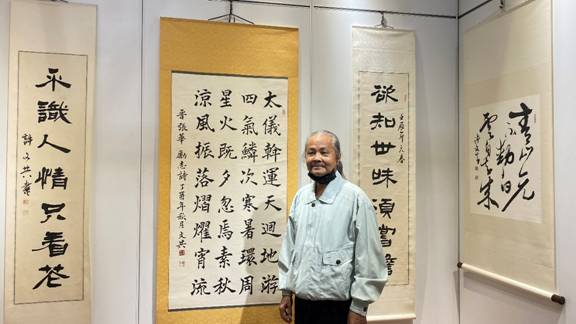 青山元
不動白
雲自去來
欲知世味須嘗
太儀斡運天迴地游
四氣鱗次寒暑環周
星火既夕忽焉素秋
涼風振落熠燿宵流
晉張華 勵志詩 丁酉年秋月 文共
不識人情只看花
許文共書